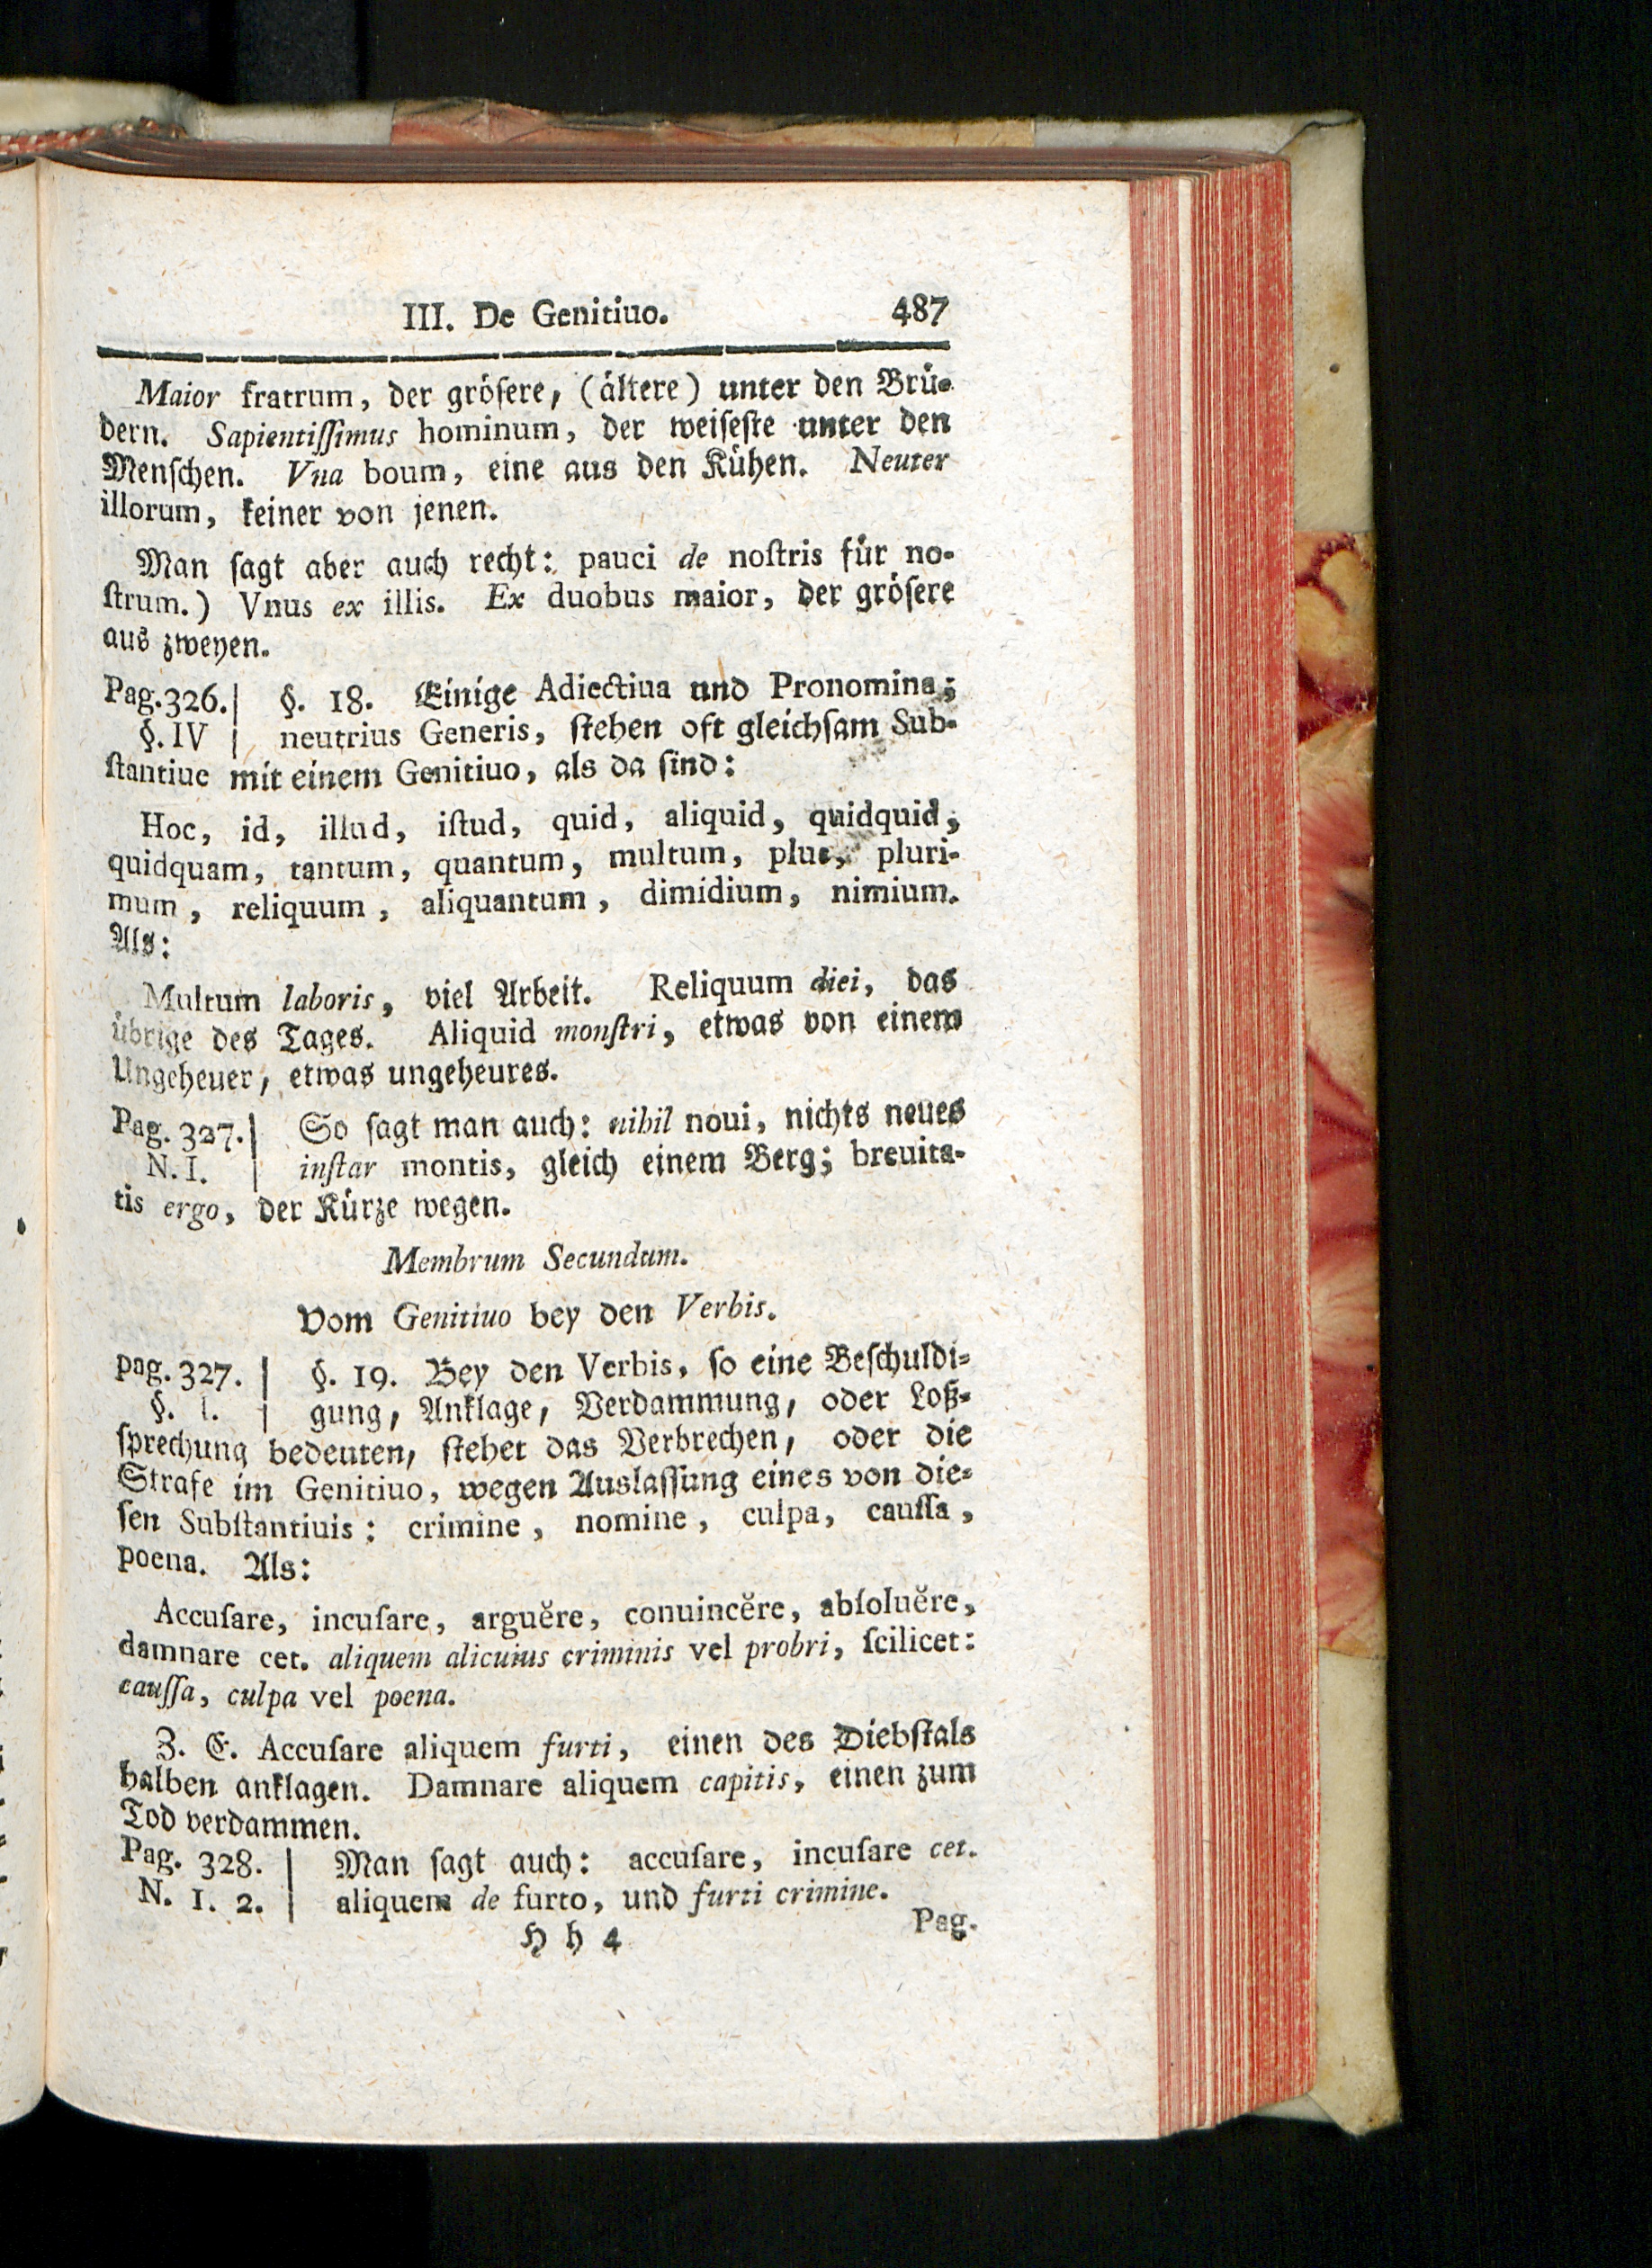 III. De Genitiuo. 487
Maior fratrum, der grösere, (ältere) unter den Brü-
dern. Sapientiſſimus hominum, der weiſeſte unter den
Menſchen. Vna boum, eine aus den Kühen. Neuter
illorum, keiner von jenen.
Man ſagt aber auch recht: pauci de noſtris für no-
ſtrum.) Vnus ex illis. Ex duobus maior, der gröſere
aus zweyen.
Pag. 326. | §. 18. Einige Adiectiua und Pronomina;
§. IV | neutrius Generis, ſtehen oft gleichſam Sub-
ſtantiue mit einem Genitiuo, als da ſind:
Hoc, id, illud, iſtud, quid, aliquid, quidquid,
quidquam, tantum, quantum, multum, plus, pluri-
mum, reliquum, aliquantum, dimidium, nimium.
Als:
Multum laboris, viel Arbeit. Reliquum diei, das
übrige des Tages. Aliquid monſtri, etwas von einem
Ungeheuer, etwas ungeheures.
Pag. 327. | So ſagt man auch: nihil noui, nichts neues
N. I. | inſtar montis, gleich einem Berg; breuita-
tis ergo, der Kürze wegen.
Membrum Secundum.
Vom Genitiuo bey den Verbis.
pag. 327. | §. 19. Bey den Verbis, ſo eine Beſchuldi-
§. I. | gung, Anklage, Verdammung, oder Loß-
ſprechung bedeuten, ſtehet das Verbrechen, oder die
Strafe im Genitiuo, wegen Auslaſſung eines von die-
ſen Subſtantiuis: crimine, nomine, culpa, cauſſa,
poena. Als:
Accuſare, incuſare, arguĕre, conuincĕre, abſoluĕre,
damnare cet. aliquem alicuius criminis vel probri, ſcilicet:
cauſſa, culpa vel poena.
Z. E. Accuſare aliquem furti, einen des Diebſtals
halben anklagen. Damnare aliquem capitis, einen zum
Tod verdammen.
Pag. 328. | Man ſagt auch: accuſare, incuſare cet.
N. I. 2. | aliquem de furto, und furti crimine.
H h 4 Pag.